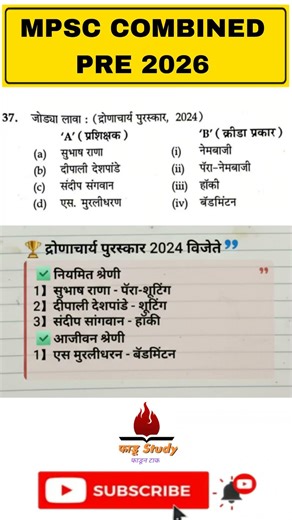 MPSC COMBINED
PRE 2026
37. जोड्या लावा : (द्रोणाचार्य पुरस्कार, 2024)
'A' (प्रशिक्षक) 'B' (क्रीडा प्रकार)
(a) सुभाष राणा (i) नेमबाजी
(b) दीपाली देशपांडे (ii) पॅरा-नेमबाजी
(c) संदीप संगवान (iii) हॉकी
(d) एस. मुरलीधरण (iv) बॅडमिंटन
द्रोणाचार्य पुरस्कार 2024 विजेते
नियमित श्रेणी
1】 सुभाष राणा - पॅरा-शूटिंग
2】 दीपाली देशपांडे - शूटिंग
3】 संदीप सांगवान - हॉकी
आजीवन श्रेणी
1】 एस मुरलीधरन - बॅडमिंटन
फाडू Study
फाडून टाक
SUBSCRIBE